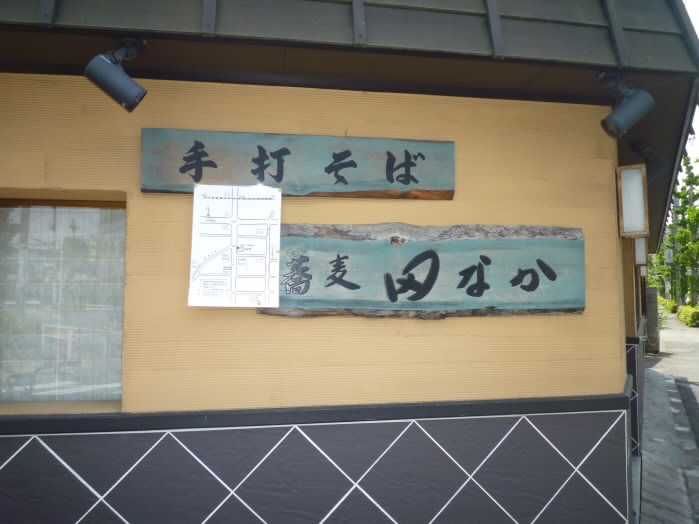 手打そば
蕎麦 田なか